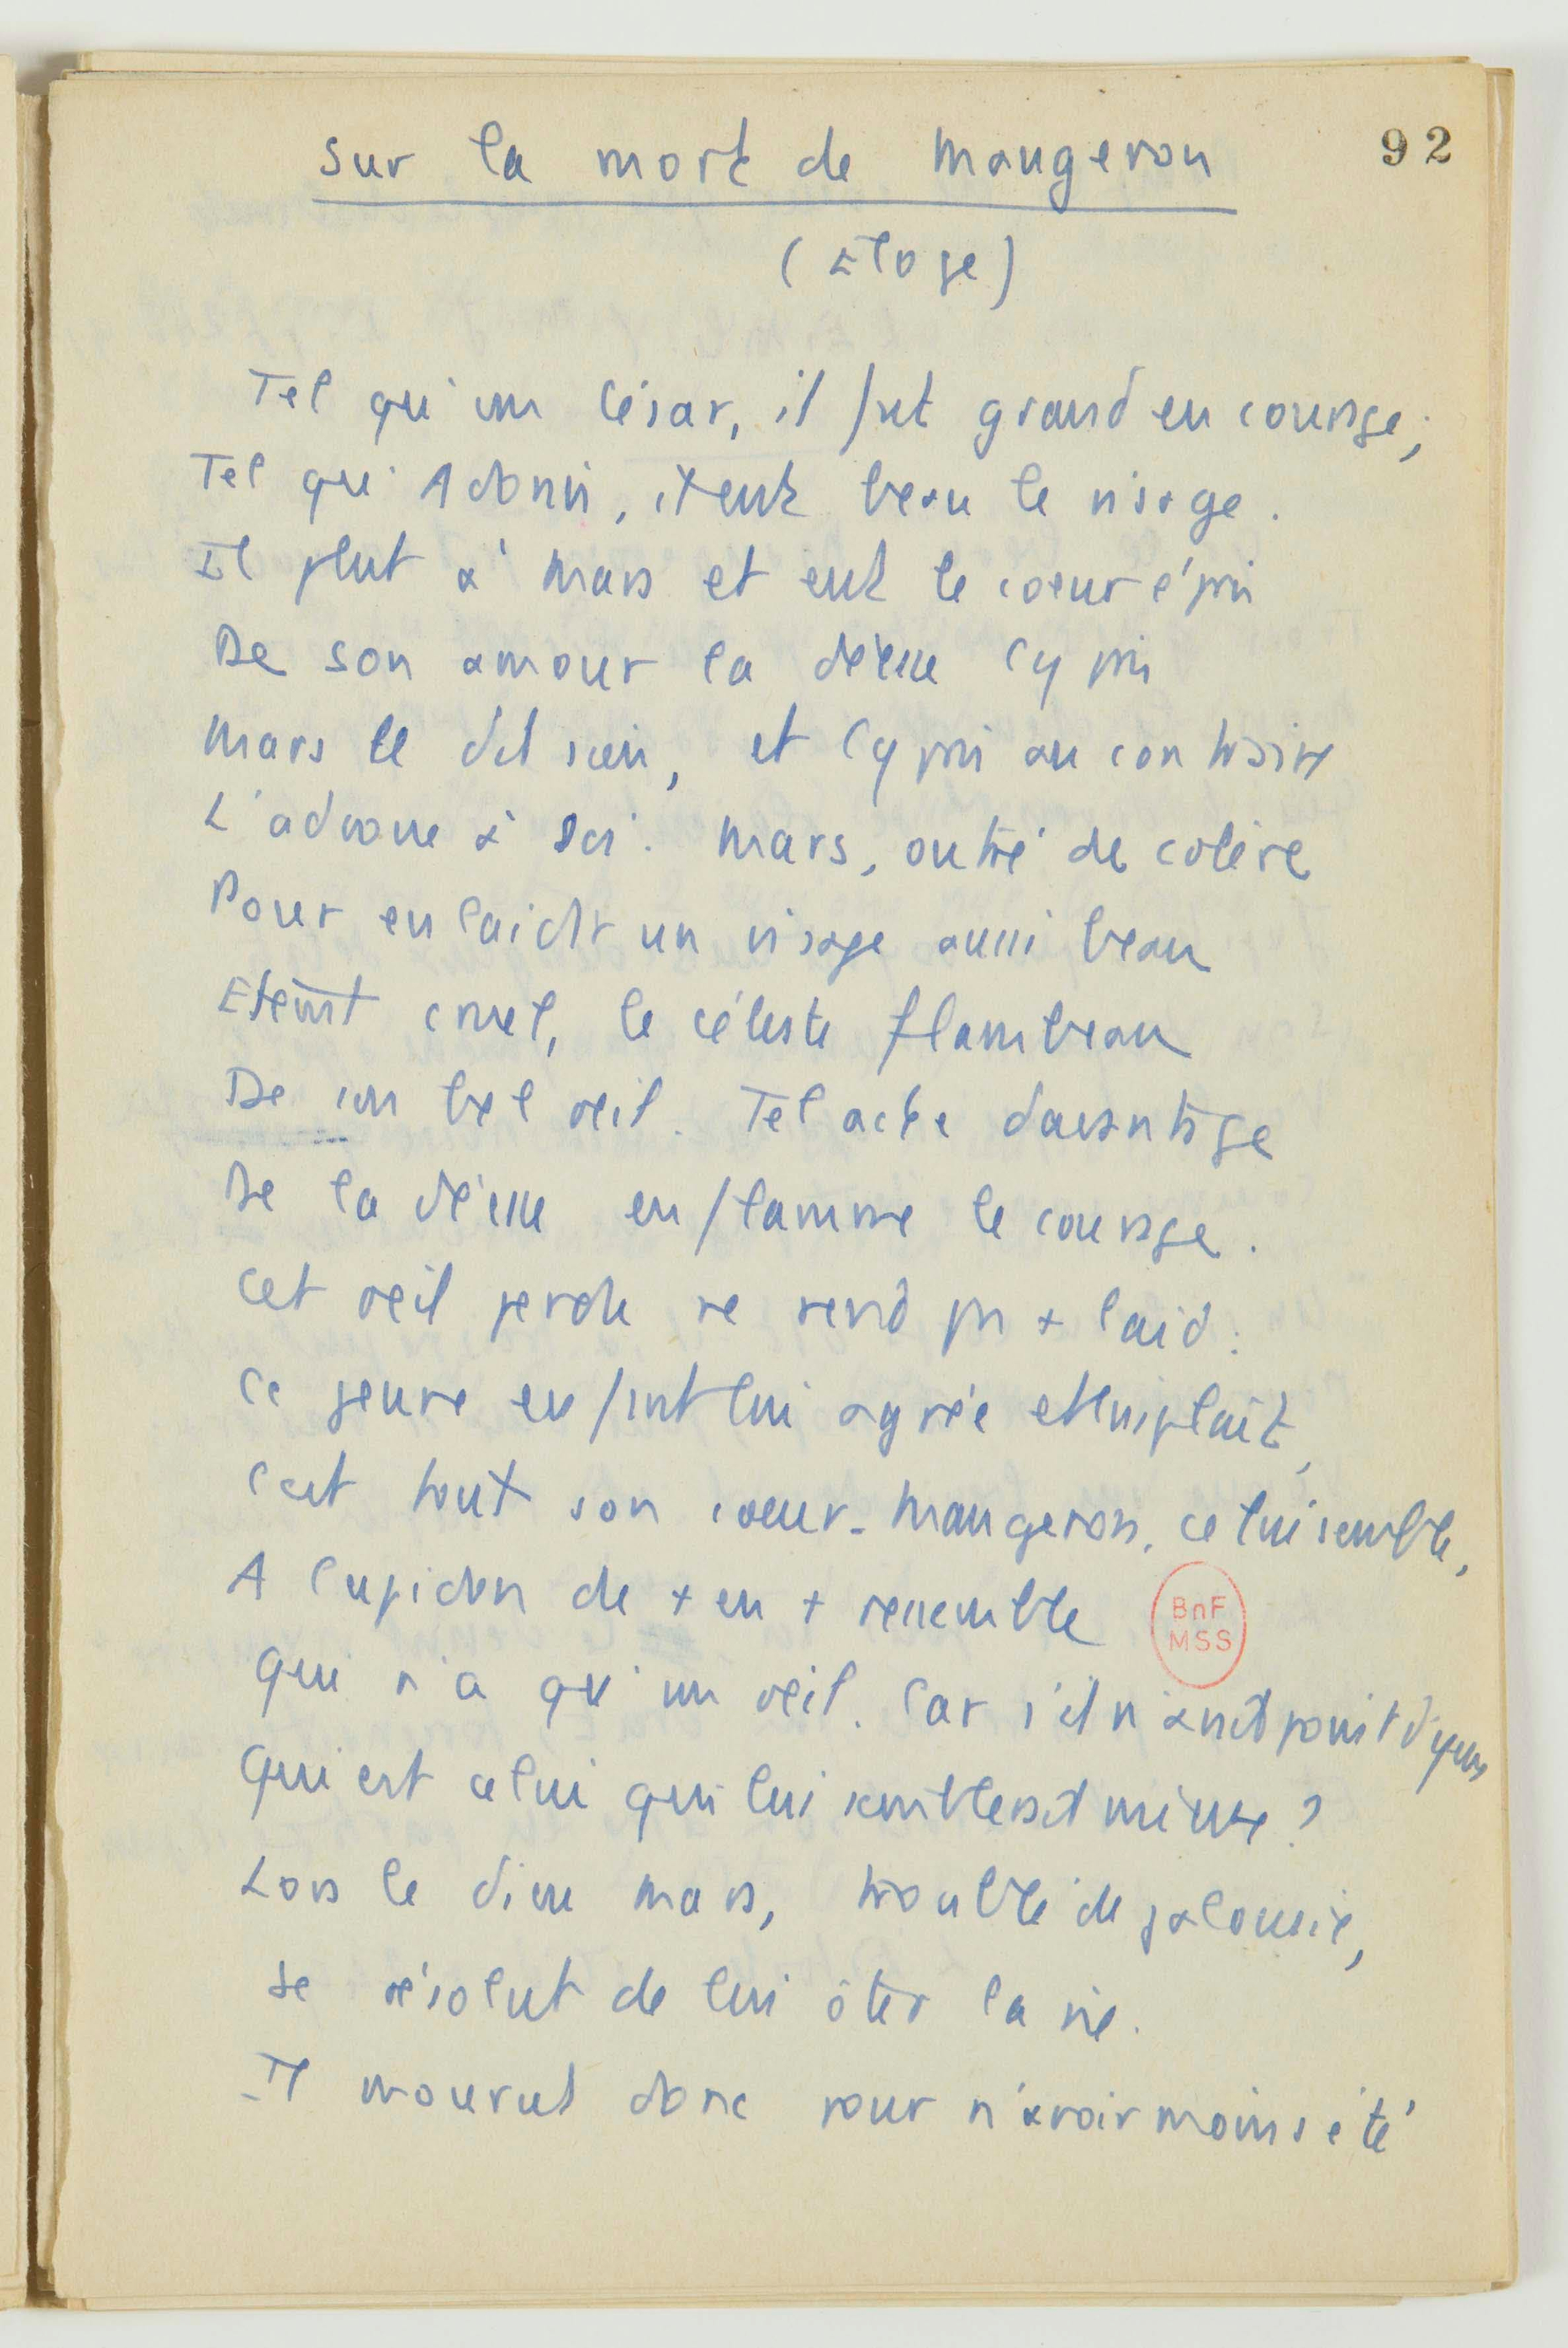 92
Sur la mort de Maugeron
(Eloge)
Tel qu'un César, il fut grand en courage ;
Tel qu'Adonis, il eut beau le visage.
Il plut à Mars et eut le coeur épris
De son amour la déesse Cypris
Mars le dit sien, et Cypris au contraire
L'advoue à soi. Mars, outré de colère
Pour enlaidir un visage aussi beau
Eteint cruel, le céleste flambeau
De son bel oeil. Tel acte davantage
De la déesse enflamme le courage.
Cet oeil perdu ne rend pas + laid :
Ce jeune enfant lui agrée et lui plaît,
C'est tout son coeur. Maugeron, ce lui semble,
A Cupidon de + en + ressemble
Qui n'a qu'un oeil. Car s'il n'avait point d'yeux
Qui est celui qui lui semblerait mieux ?
Lors le dieu Mars, troublé de jalousie,
Se résolut de lui ôter la vie.
Il mourut donc pour n'avoir moins été
BnF
MSS